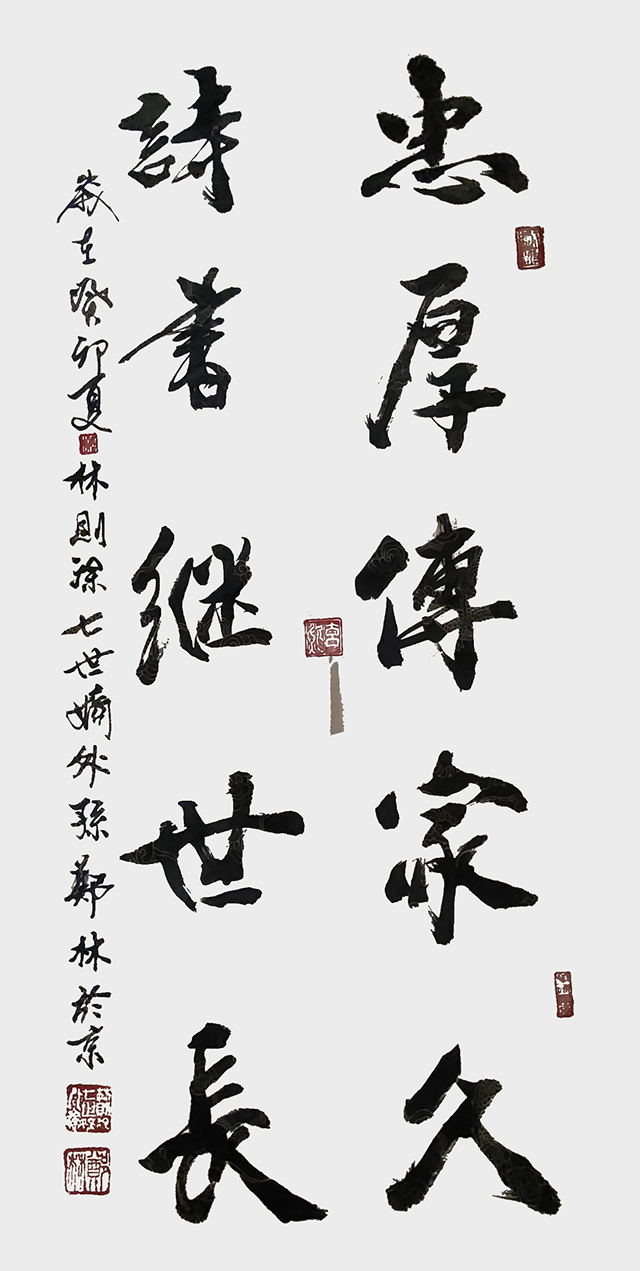 忠厚傳家久
詩書继世長
歲在癸卯夏 林則徐七世嫡外孫鄭林於京